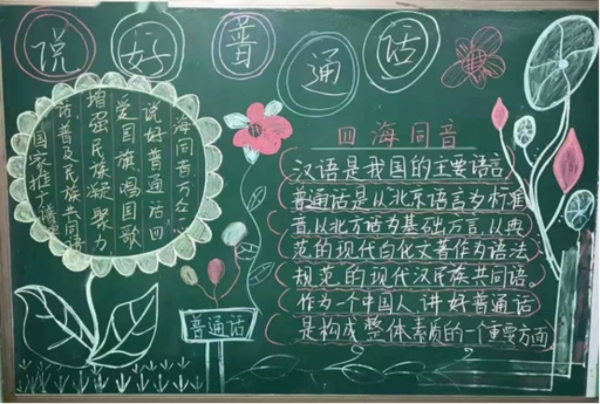 说好普通话
国家推广普
话,普及民族共同语
增强民族凝聚力
爱国旗,唱国歌
说好普通话四
海同音万众一心
普通话
四海同音
汉语是我国的主要语言
普通话是以"北京语言为标准
音,以北方话为基础方言,以典
范的现代白化文著作为语法
规范的现代汉民族共同语。
作为一个中国人,讲好普通话
是构成整体素质的一个重要方面